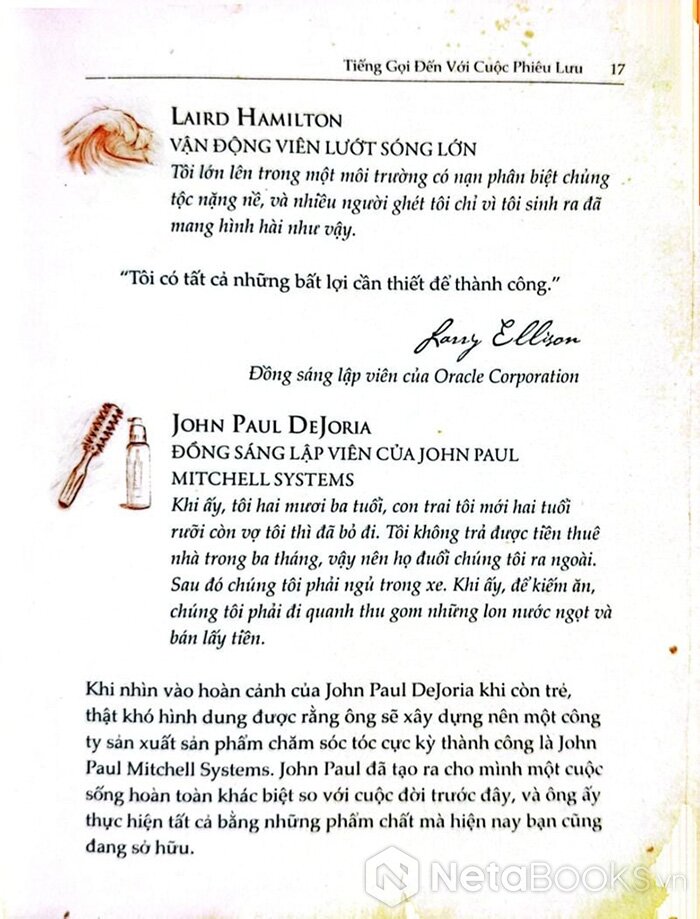 Tiếng Gọi Đến Với Cuộc Phiêu Lưu 17
LAIRD HAMILTON
VẬN ĐỘNG VIÊN LƯỚT SÓNG LỚN
Tôi lớn lên trong một môi trường có nạn phân biệt chủng
tộc nặng nề, và nhiều người ghét tôi chỉ vì tôi sinh ra đã
mang hình hài như vậy.
“Tôi có tất cả những bất lợi cần thiết để thành công.”
Larry Ellison
Đồng sáng lập viên của Oracle Corporation
JOHN PAUL DEJORIA
ĐỒNG SÁNG LẬP VIÊN CỦA JOHN PAUL
MITCHELL SYSTEMS
Khi ấy, tôi hai mươi ba tuổi, con trai tôi mới hai tuổi
rưỡi còn vợ tôi thì đã bỏ đi. Tôi không trả được tiền thuê
nhà trong ba tháng, vậy nên họ đuổi chúng tôi ra ngoài.
Sau đó chúng tôi phải ngủ trong xe. Khi ấy, để kiếm ăn,
chúng tôi phải đi quanh thu gom những lon nước ngọt và
bán lấy tiền.
Khi nhìn vào hoàn cảnh của John Paul DeJoria khi còn trẻ,
thật khó hình dung được rằng ông sẽ xây dựng nên một công
ty sản xuất sản phẩm chăm sóc tóc cực kỳ thành công là John
Paul Mitchell Systems. John Paul đã tạo ra cho mình một cuộc
sống hoàn toàn khác biệt so với cuộc đời trước đây, và ông ấy
thực hiện tất cả bằng những phẩm chất mà hiện nay bạn cũng
đang sở hữu.
NETABOOKS.vn